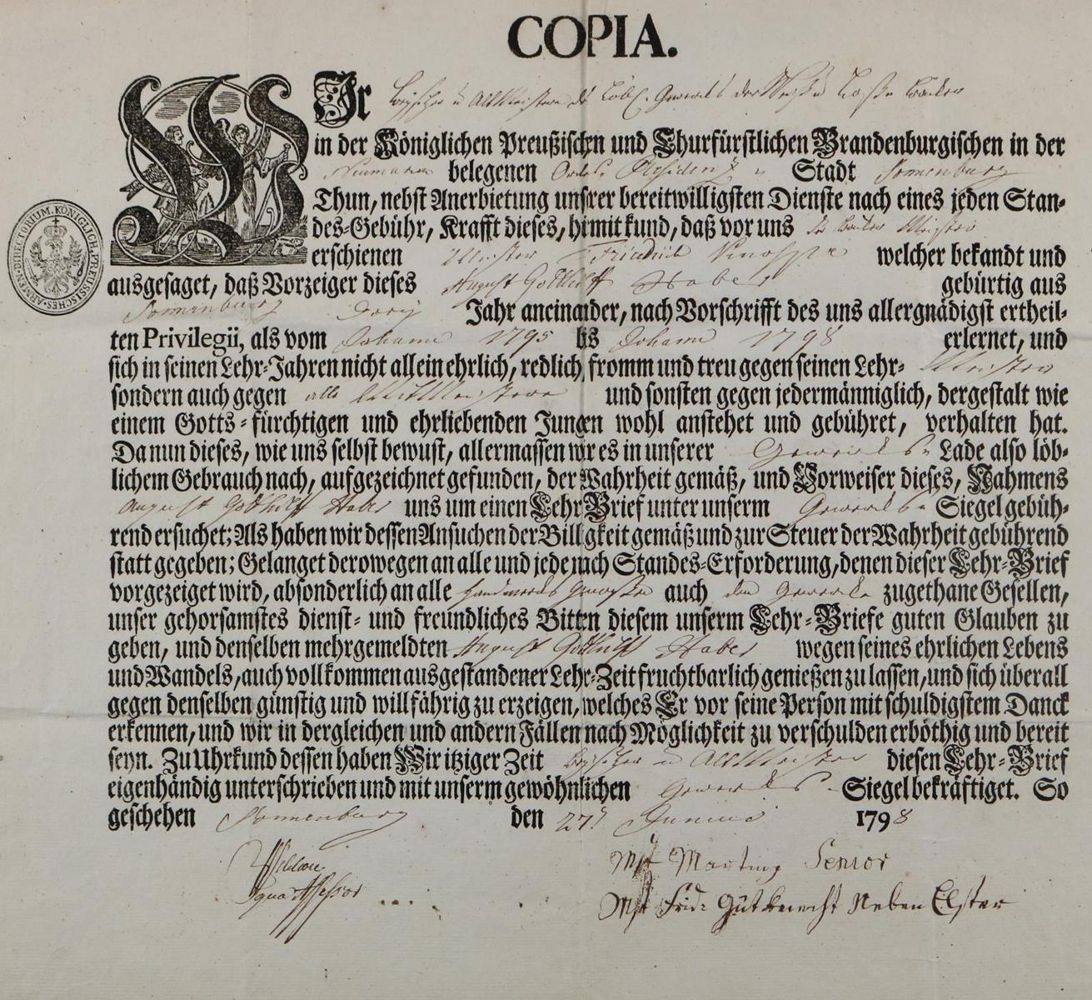 COPIA.
WJr Beysitzer u Altmeister des Löbl. Gewercks der
in der Königlichen Preußischn und Churfürstlichen Brandenburgischen in der
Neumarck belegenen Ordens Residentz Stadt Sonnenburg
Thun, nebst Anerbietung unsrer bereitwilligsten Dienste nach eines jeden Stan-
des-Gebühr, Krafft dieses, hirmit kund, daß vor uns Meister
erschienen Meister Friedrich welcher bekandt und
ausgesaget, daß Vorzeiger dieses August Gotthilff gebürtig aus
Sonnenburg drey Jahr aneinander, nach Vorschrifft des uns allergnädigst ertheil-
ten Privilegii, als vom Johanni 1795 bis Johanni 1798 erlernet, und
sich in seinen Lehr-Jahren nicht allein ehrlich, redlich, fromm und treu gegen seinen Lehr- Meister
sondern auch gegen alle und sonsten gegen jedermänniglich, dergestalt wie
einem Gotts-fürchtigen und ehrliebenden Jungen wohl anstehet und gebühret, verhalten hat.
Da nun dieses, wie uns selbst bewust, allermassen wir es in unserer Gewercks- Lade also löb-
lichem Gebrauch nach, aufgezeichnet gefunden, der Wahrheit gemäß, und Vorweiser dieses, Nahmens
August Gotthilff uns um einen Lehr-Brief unter unserm Gewercks- Siegel gebüh-
rend ersuchet; Als haben wir dessen Ansuchen der Billigkeit gemäß und zur Steuer der Wahrheit gebührend
statt gegeben; Gelanget derowegen an alle und jede nach Standes-Erforderung, denen dieser Lehr-Brief
vorgezeiget wird, absonderlich an alle Handwercks Genossen auch dem Gewercke zugethane Gesellen,
unser gehorsamstes dienst- und freundliches Bitten diesem unserm Lehr-Briefe guten Glauben zu
geben, und denselben mehrgemeldten August Gotthilff wegen seines ehrlichen Lebens
und Wandels, auch vollkommen ausgestandener Lehr-Zeit fruchtbarlich genießen zu lassen, und sich überall
gegen denselben günstig und willfährig zu erzeigen, welches Er vor seine Person mit schuldigstem Danck
erkennen, und wir in dergleichen und andern Fällen nach Möglichkeit zu verschulden erböthig und bereit
seyn. Zu Uhrkund dessen haben Wir itziger Zeit Beysitzer u Altmeister diesen Lehr-Brief
eigenhändig unterschrieben und mit unserm gewöhnlichen Gewercks- Siegel bekräftiget. So
geschehen Sonnenburg den 27 Junii 1798
Mst Martin Senior
qua Assessor
Mst Frid: Gutknecht Neben Elster